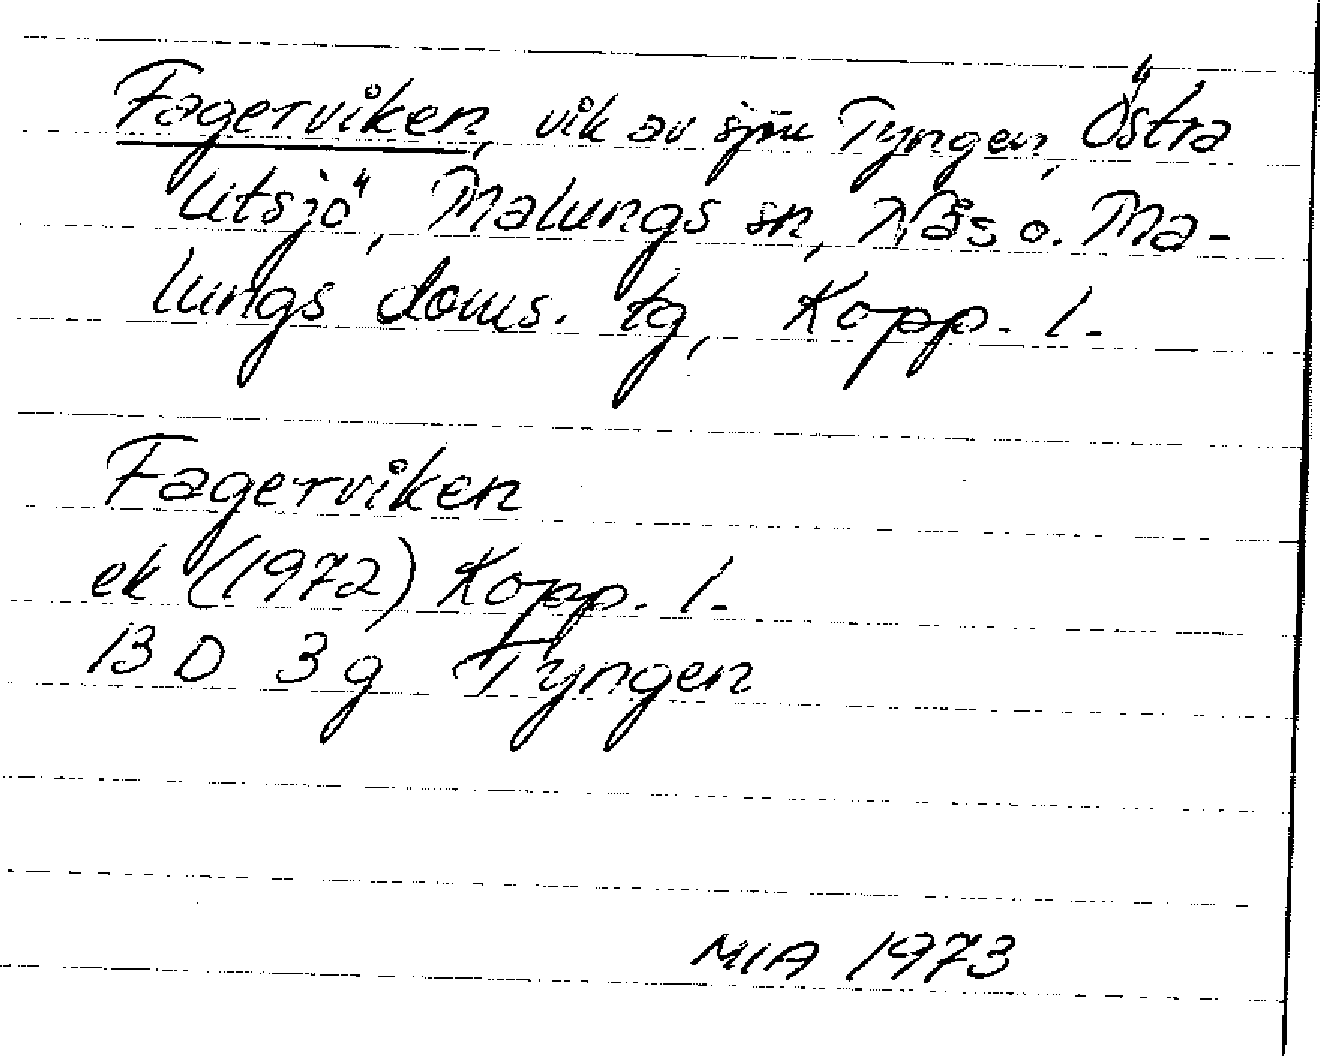 Fagerviken, vik av sjön Tyngen, Östra
Utsjö, Malungs sn, Nås o. Ma-
lungs doms. tg, Kopp. l.
Fagerviken
ek (1972) Kopp. l.
13 D 3g Tyngen
MIA 1973